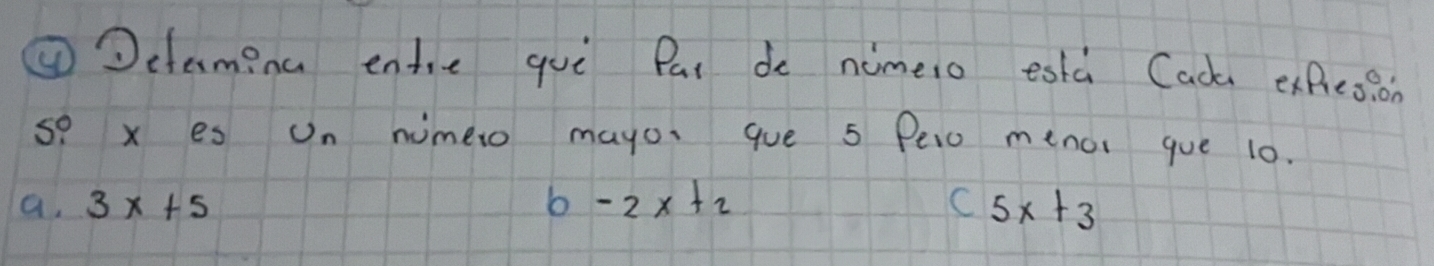 ④ Determina entre qué Par de número está Cada expresión
si x es un número mayor que 5 Pero menor que 10.
a. 3x+5 b -2x+2 C 5x+3